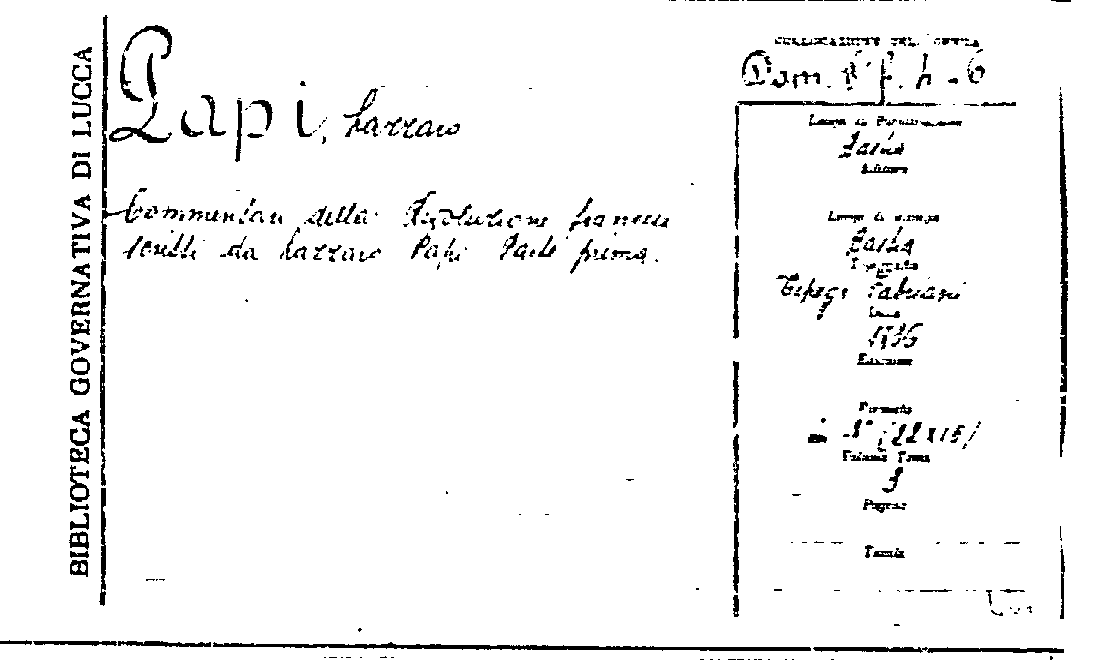 BIBLIOTECA GOVERNATIVA DI LUCCA
Papi, Lazzaro
Commentari della Rivoluzione francese
scritti da Lazzaro Papi Parte prima.
COLLOCAZIONE DELL'OPERA
Luogo di Pubblicazione
Editore
Luogo di stampa
Tipografo
Tipogr. Fabriani
Data
Edizione
Formato
in 8° (22x15)
Volume Tomo
3
Pagine
Tavole